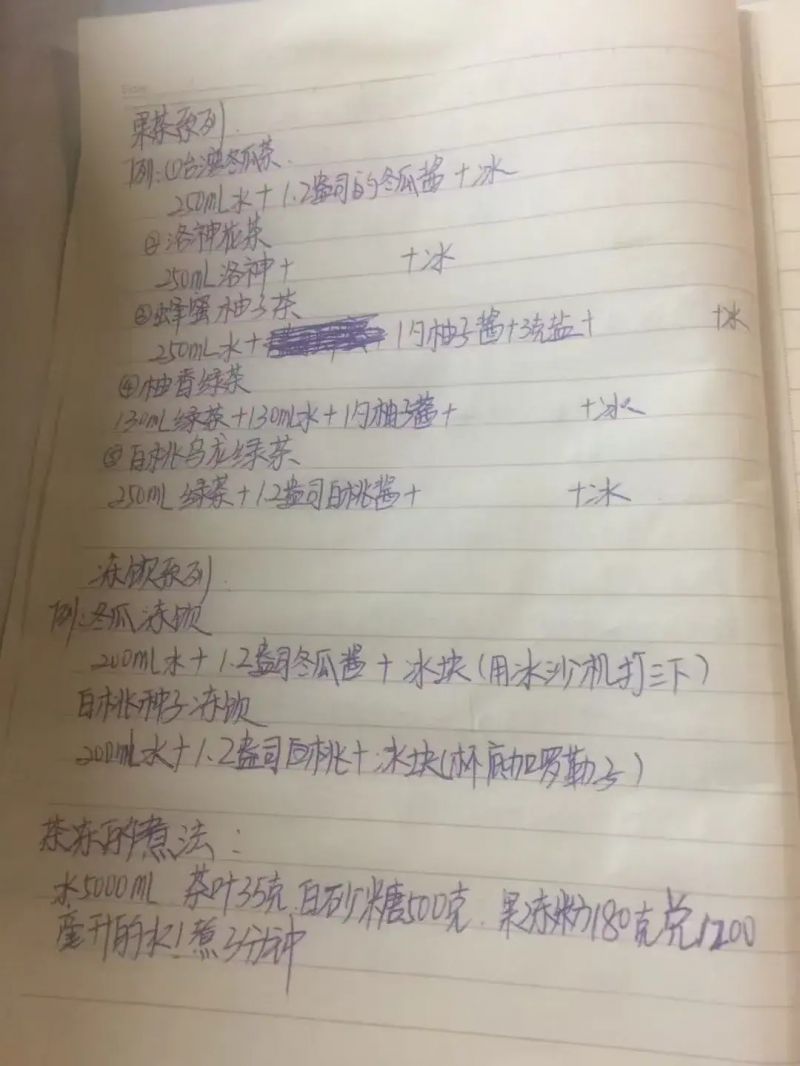 果茶系列
例:①台湾冬瓜茶.
250mL水+1.2盎司的冬瓜酱+冰
②洛神花茶
250mL洛神+ +冰
③蜂蜜柚子茶
250mL水+ 1勺柚子酱+3克盐+ +冰
④柚香绿茶
130mL绿茶+130mL水+1勺柚子酱+ +冰
⑤白桃乌龙绿茶
250mL绿茶+1.2盎司白桃酱+ +冰
冻饮系列
例:冬瓜冻饮
200mL水+1.2盎司冬瓜酱+冰块(用冰沙机打三下)
白桃种子冻饮
200mL水+1.2盎司白桃+冰块(杯底加罗勒子)
茶冻的煮法:
水5000mL 茶叶35克.白砂糖500克.果冻粉180克兑1200
毫升的水!煮3分钟